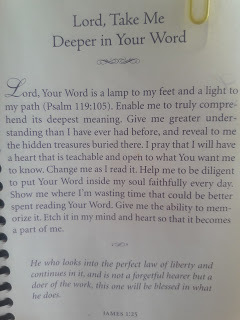 Lord, Take Me
Deeper in Your Word
Lord, Your Word is a lamp to my feet and a light to
my path (Psalm 119:105). Enable me to truly compre-
hend its deepest meaning. Give me greater under-
standing than I have ever had before, and reveal to me
the hidden treasures buried there. I pray that I will have
a heart that is teachable and open to what You want me
to know. Change me as I read it. Help me to be diligent
to put Your Word inside my soul faithfully every day.
Show me where I'm wasting time that could be better
spent reading Your Word. Give me the ability to mem-
orize it. Etch it in my mind and heart so that it becomes
a part of me.
He who looks into the perfect law of liberty and
continues in it, and is not a forgetful hearer but a
doer of the work, this one will be blessed in what
he does.
JAMES 1:25